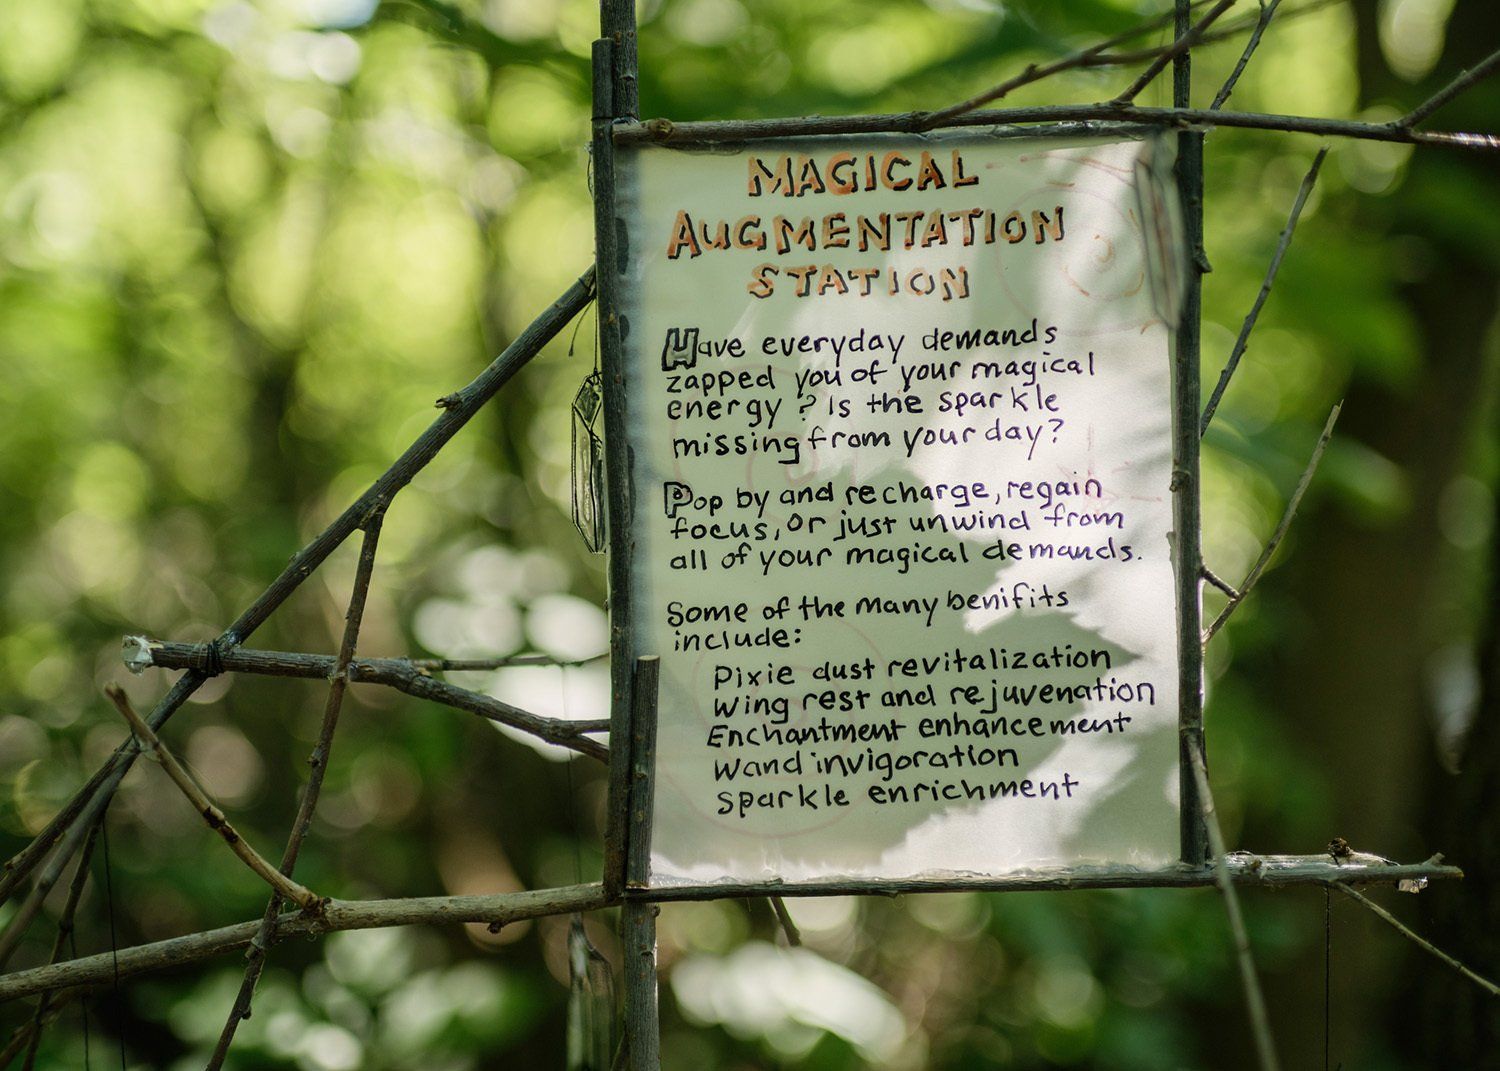 MAGICAL
AUGMENTATION
STATION
Have everyday demands
zapped you of your magical
energy? Is the sparkle
missing from your day?
Pop by and recharge, regain
focus, or just unwind from
all of your magical demands.
Some of the many benifits
include:
Pixie dust revitalization
Wing rest and rejuvenation
Enchantment enhancement
Wand invigoration
Sparkle enrichment